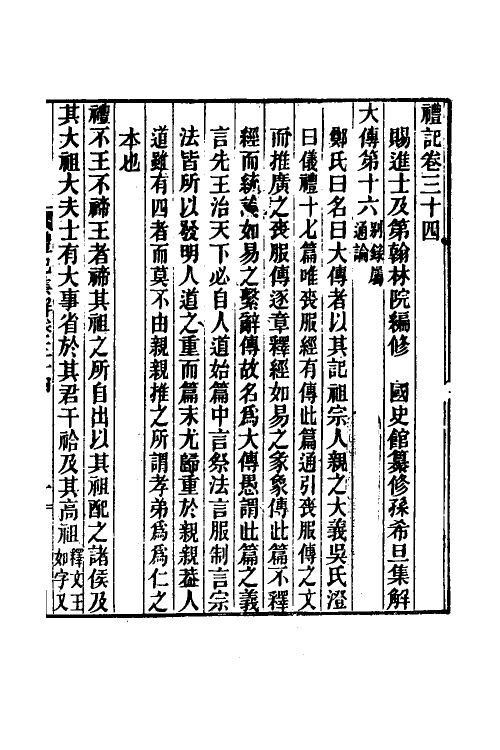 禮記卷三十四
賜進士及第翰林院編修　國史館纂修孫希旦集解
大傳第十六別錄屬通論
鄭氏曰名曰大傳者以其記祖宗人親之大義吳氏澄
曰儀禮十七篇唯喪服經有傳此篇通引喪服傳之文
而推廣之喪服傳逐章釋經如易之彖象傳此篇不釋
經而統論如易之繫辭傳故名爲大傳愚謂此篇之義
言先王治天下必自人道始篇中言祭法言服制言宗
法皆所以發明人道之重而篇末尤歸重於親親葢人
道雖有四者而莫不由親親推之所謂孝弟爲爲仁之
本也
禮不王不禘王者禘其祖之所自出以其祖配之諸侯及
其大祖大夫士有大事省於其君干祫及其高祖釋文王如字又